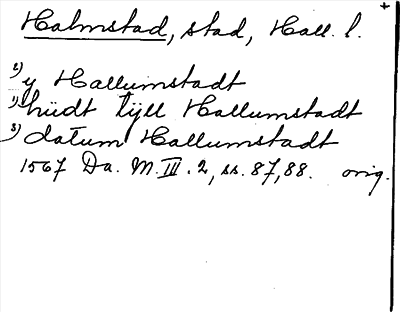 Halmstad, stad, Hall. l. +
2) y Hallumstadt
1) hüdt tijll Hallumstadt
3) datum Hallumstadt
1567 Da. M. III. 2, ss. 87, 88. orig.